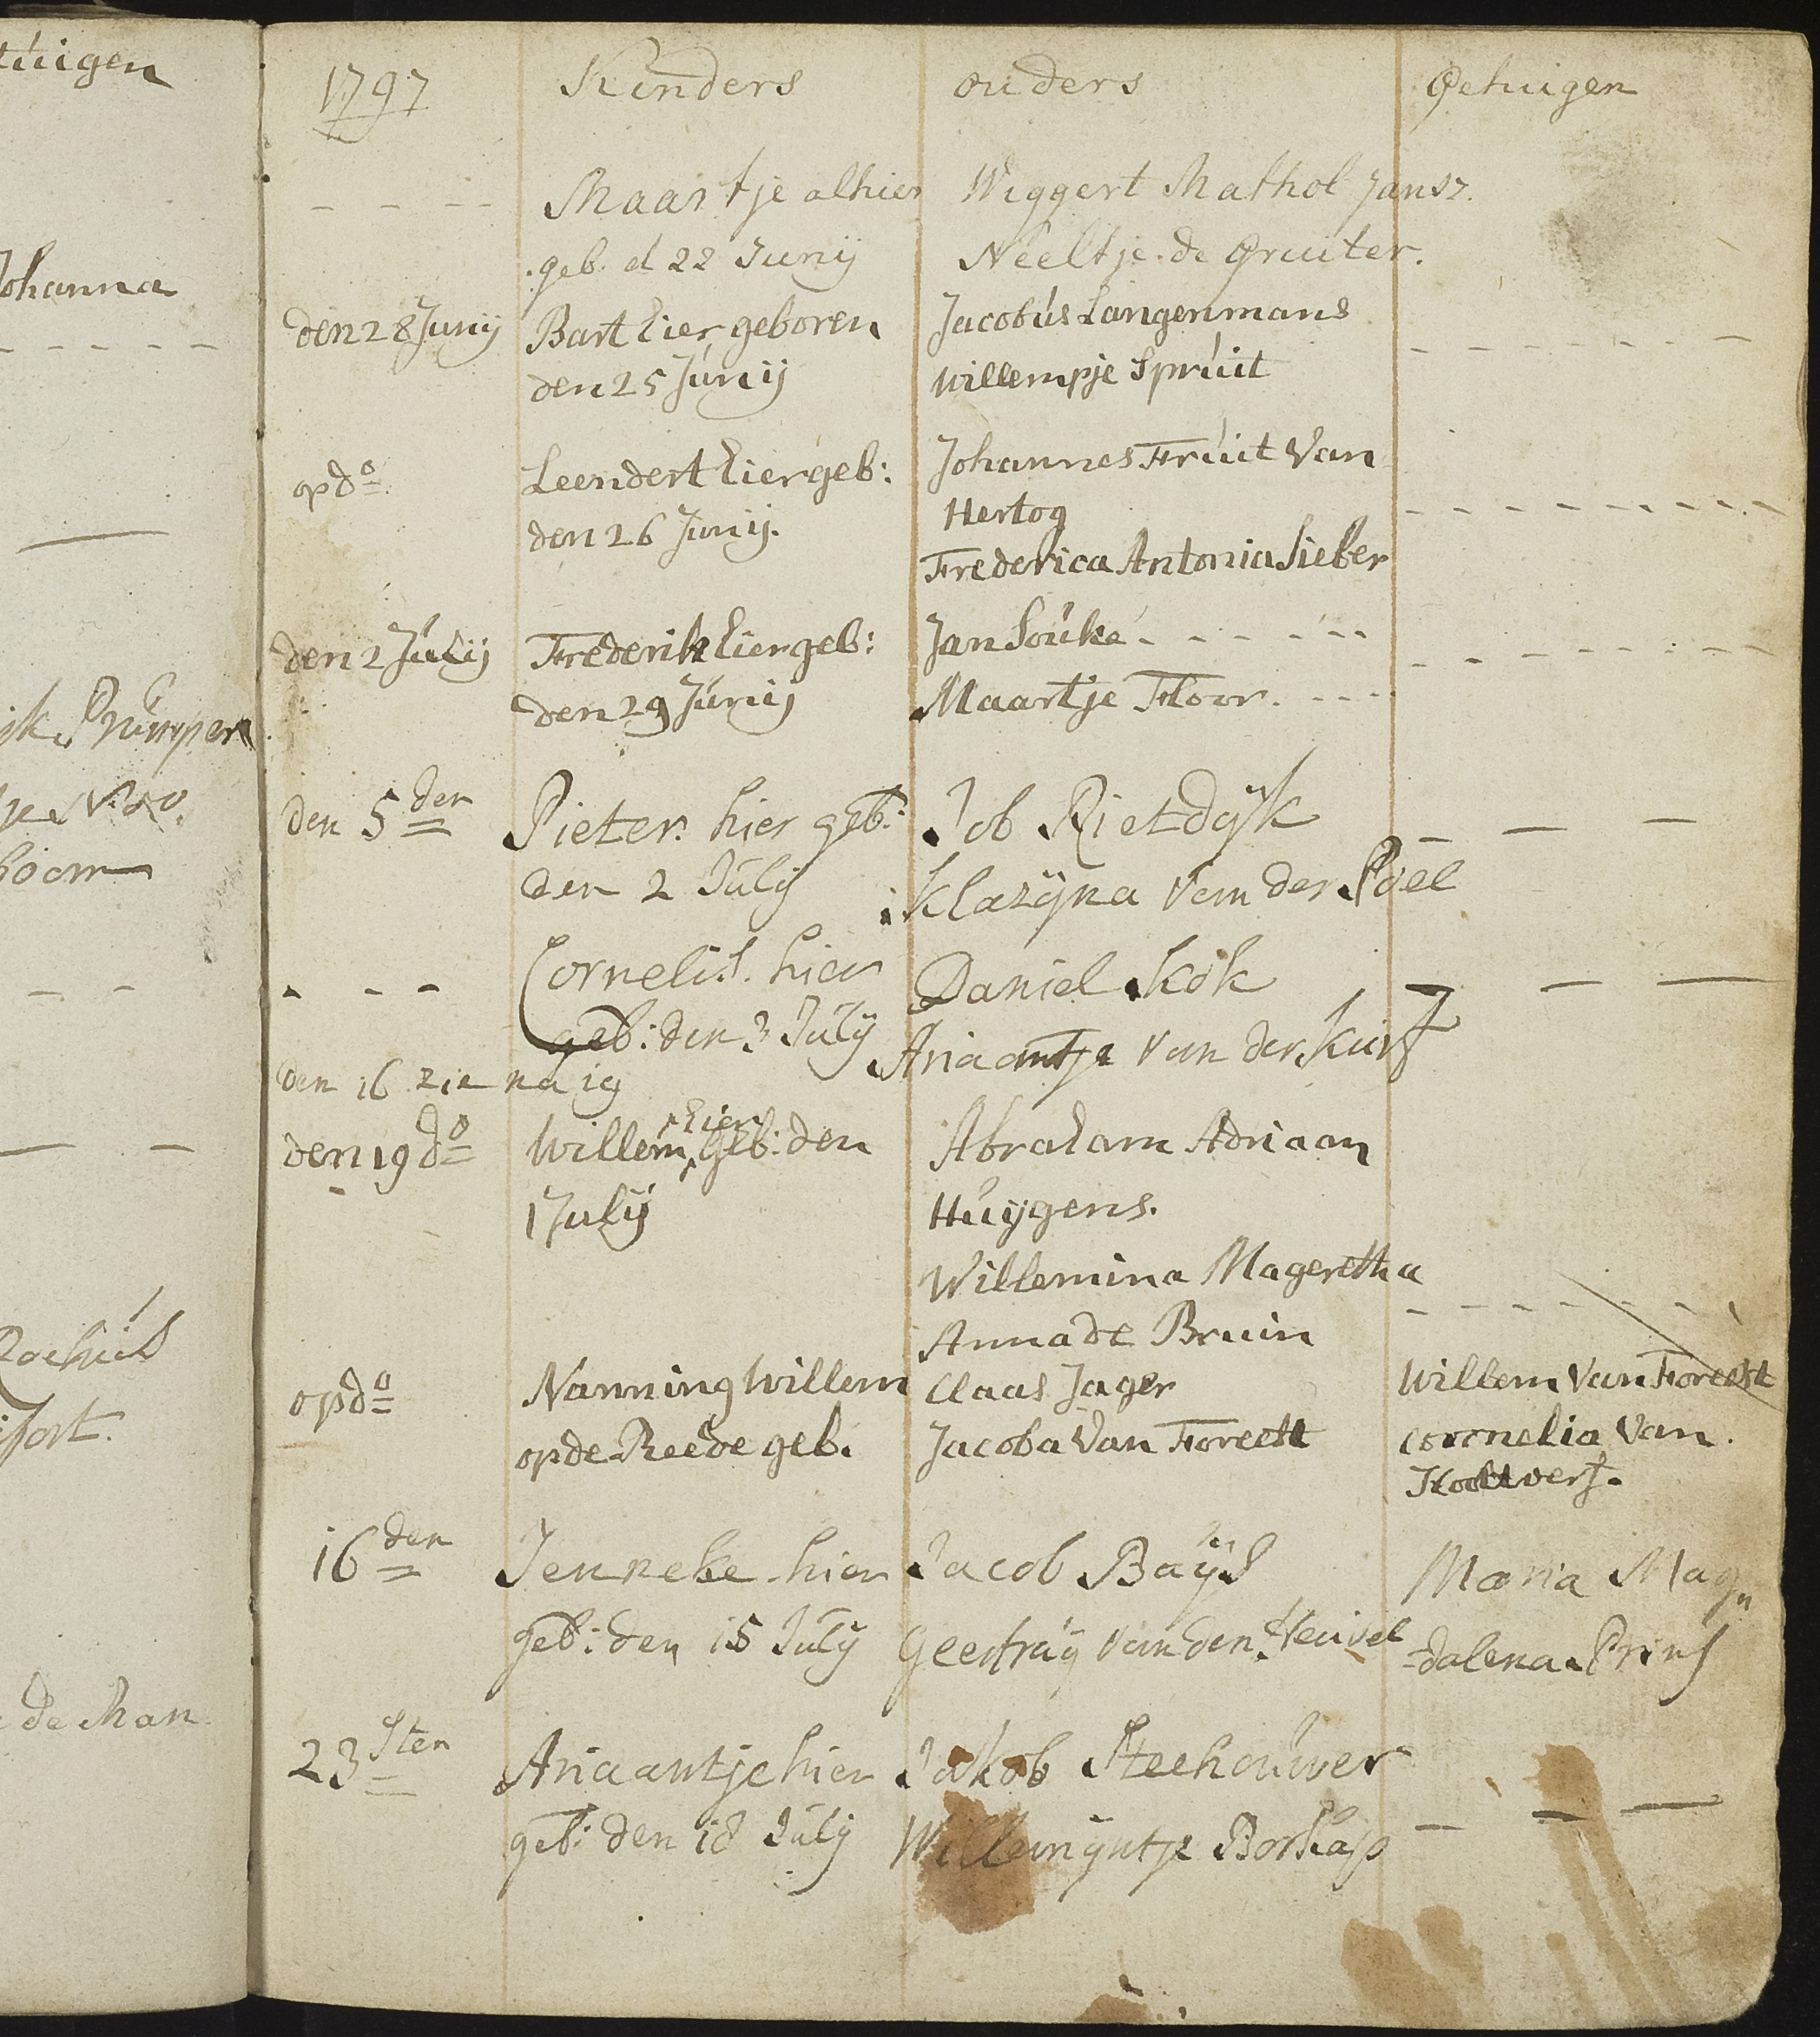 tuigen
Johanna
Prumper
boom
Rochus
fort.
de Man
1797 Kinders ouders Getuigen
Maartje alhier Wiggert Mathol Jansz.
geb. d 22 Junij Neeltje de Gruiter.
den 28 Junij Bart hier geboren Jacobus Langenmans
den 25 Junij Willempje Spruit
op do Leendert hier geb: Johannes Fruit Van
den 26 Junij. Hertog
Frederica Antonia Sieber
den 2 Julij Frederik hier geb: Jan Souke
den 29 Junij Maartje Floor.
den 5 der Pieter. hier geb: Job Rietdijk
den 2 July Klazijna van der Poel
Cornelis. hier Daniel Kok
geb: den 3 July Ariaantje van der Kurf
den 16 zie na ig
den 19 do Willem hier geb: den Abraham Adriaan
1 Julij Huijgens.
Willemina Mageretha
Anna de Bruin
op do Nanning Willem Claas Jager Willem Van Foreest
op de Reede geb. Jacoba Van Foreest Cornelia Van.
16 den Jenneke hier Jacob Baijs Maria Mag„
geb: den 15 July Geertruy van den Heuvel dalena Prins
23 sten Ariaantje hier Jakob Steehouwer
geb: den 18 July Willemijntje Borkap